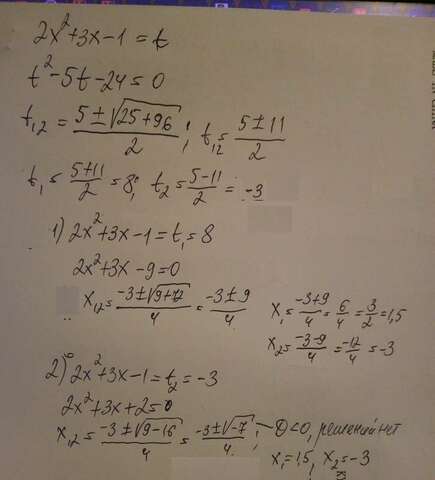 2x²+3x-1=t
t²-5t-24=0
t₁,₂ = (5±√(25+96))/2 ; t₁₂ = (5±11)/2
t₁ = (5+11)/2 = 8; t₂ = (5-11)/2 = -3
1) 2x²+3x-1=t₁=8
2x²+3x-9=0
x₁,₂ = (-3±√(9+72))/4 = (-3±9)/4
x₁ = (-3+9)/4 = 6/4 = 3/2 = 1,5
x₂ = (-3-9)/4 = -12/4 = -3
2) 2x²+3x-1=t₂=-3
2x²+3x+2=0
x₁,₂ = (-3±√(9-16))/4 = (-3±√-7)/4 ; - D<0, решений нет
x₁=1,5, x₂=-3